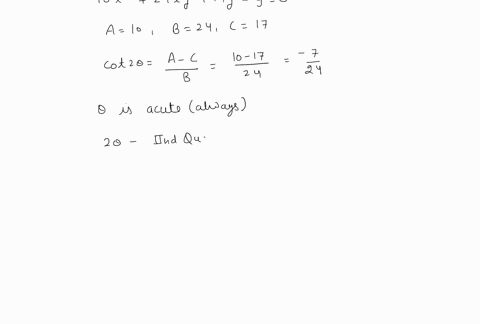 A = 10, B = 24, C = 17
cot 2θ = A - C / B = 10 - 17 / 24 = - 7 / 24
θ is acute (always)
2θ - IInd Qu.